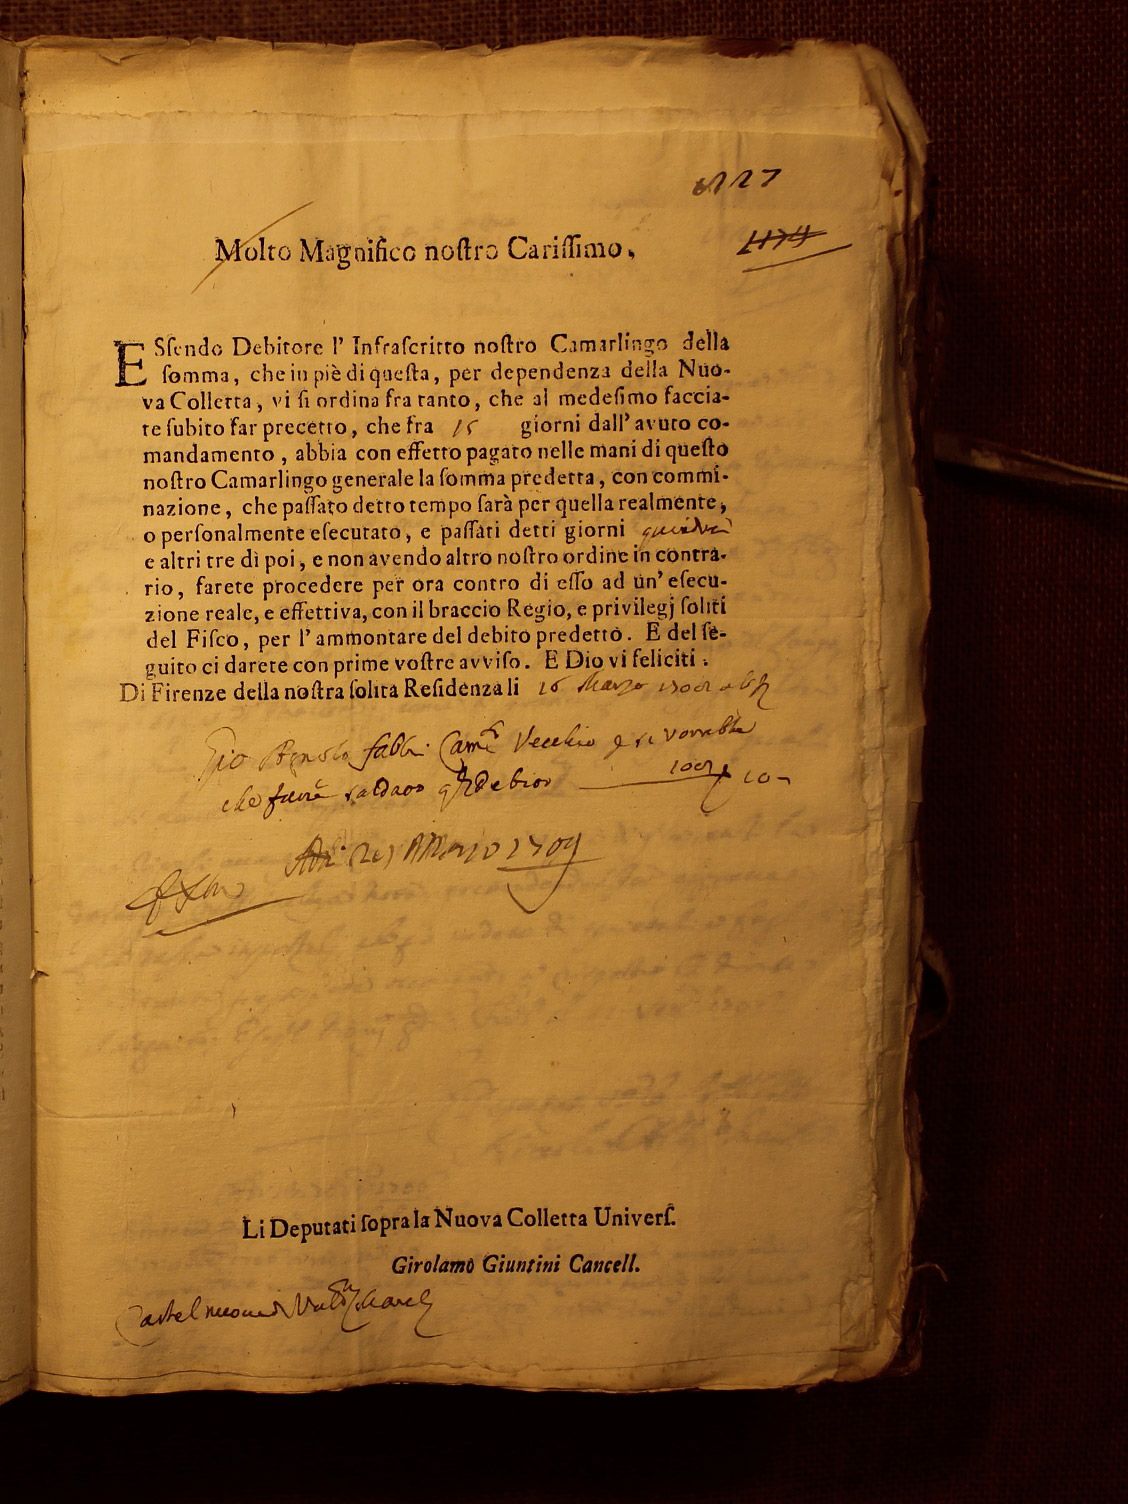 227
1174
Molto Magnifico noſtro Cariſſimo,
ESſendo Debitore l' Infraſcritto noſtro Camarlingo della
ſomma, che in piè di queſta, per dependenza della Nuo-
va Colletta, vi ſi ordina fra tanto, che al medeſimo faccia-
te ſubito far precetto, che fra 15 giorni dall' avuto co-
mandamento, abbia con effetto pagato nelle mani di queſto
noſtro Camarlingo generale la ſomma predetta, con commi-
nazione, che paſſato detto tempo ſarà per quella realmente,
o perſonalmente eſecutato, e paſſati detti giorni quindici
e altri tre di poi, e non avendo altro noſtro ordine in contra-
rio, farete procedere per ora contro di eſſo ad un' eſecu-
zione reale, e effettiva, con il braccio Regio, e privilegj ſoliti
del Fiſco, per l' ammontare del debito predetto. E del ſe-
guito ci darete con prime voſtre avviſo. E Dio vi feliciti.
Di Firenze della noſtra ſolita Reſidenza li 16 Marzo 1708
Gio Agnolo fabbri Cam.º Vecchio e si vorrebbe
che saldato debito 10-
Adi Marzo 1709
Li Deputati ſopra la Nuova Colletta Univerſ.
Girolamo Giuntini Cancell.
Castelnuovo di